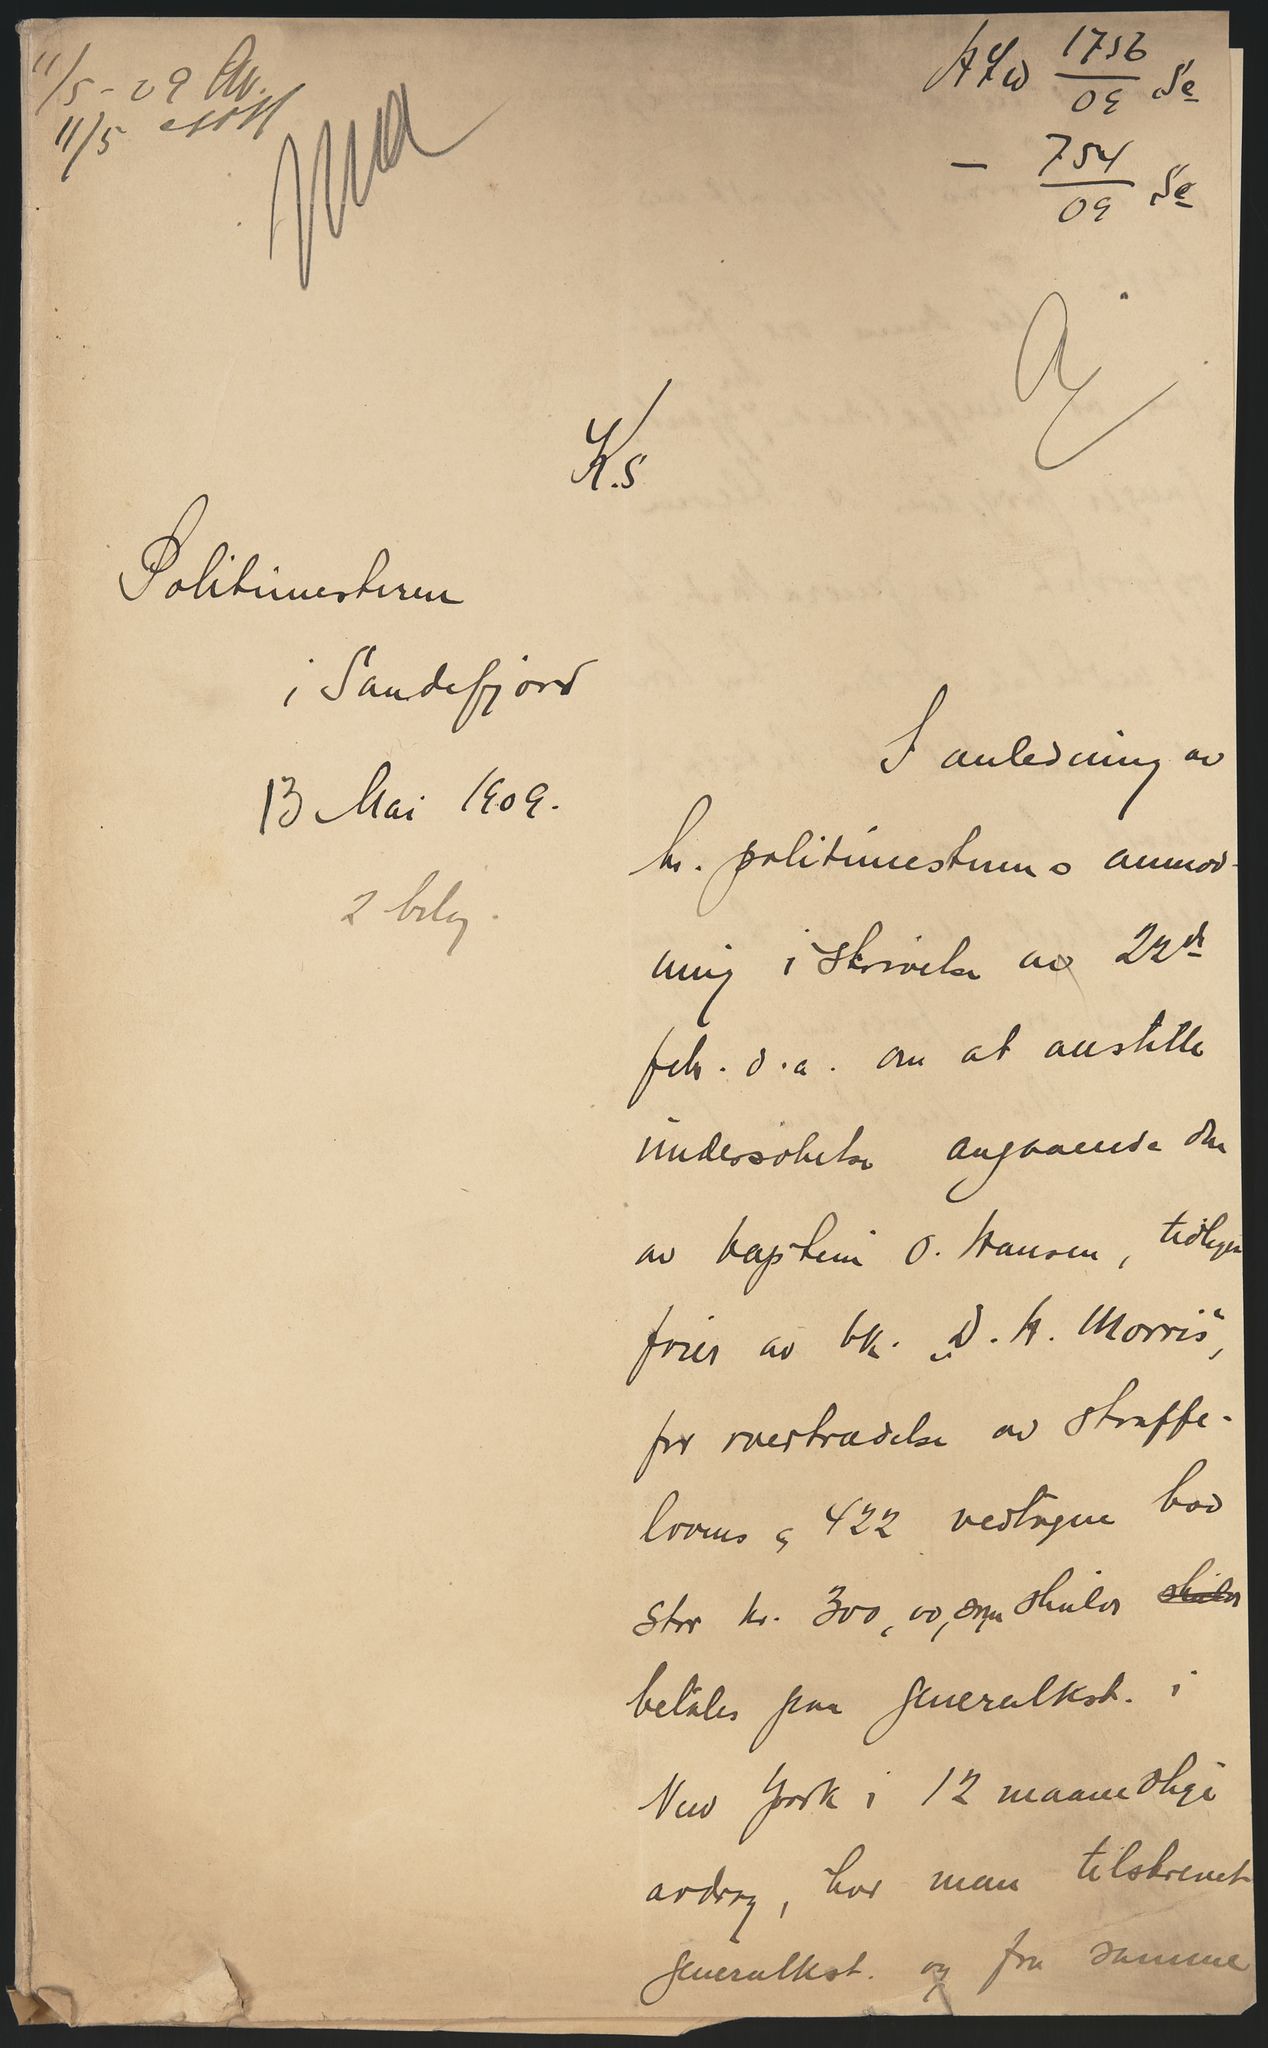 11/5-09
11/5
1756
09 Se
– 754
09 Se
K.S
Politimesteren
i Sandefjord
13 Mai 1909.
2 bilag.
I anledning av
hr. politimesterens anmod-
ning i skrivelse av 22de
febr. d.a. om at anstille
undersøkelse angaaende den
av kaptein O. Hansen, tidligere
fører av bk. „D. H. Morris",
for overtrædelse av straffe-
lovens § 422 vedtagne bod
stor kr. 300,00, som skulde skulde
betales paa generalkst. i
New York i 12 maanedlige
avdrag, har man tilskrevet
generalkst. og fra samme